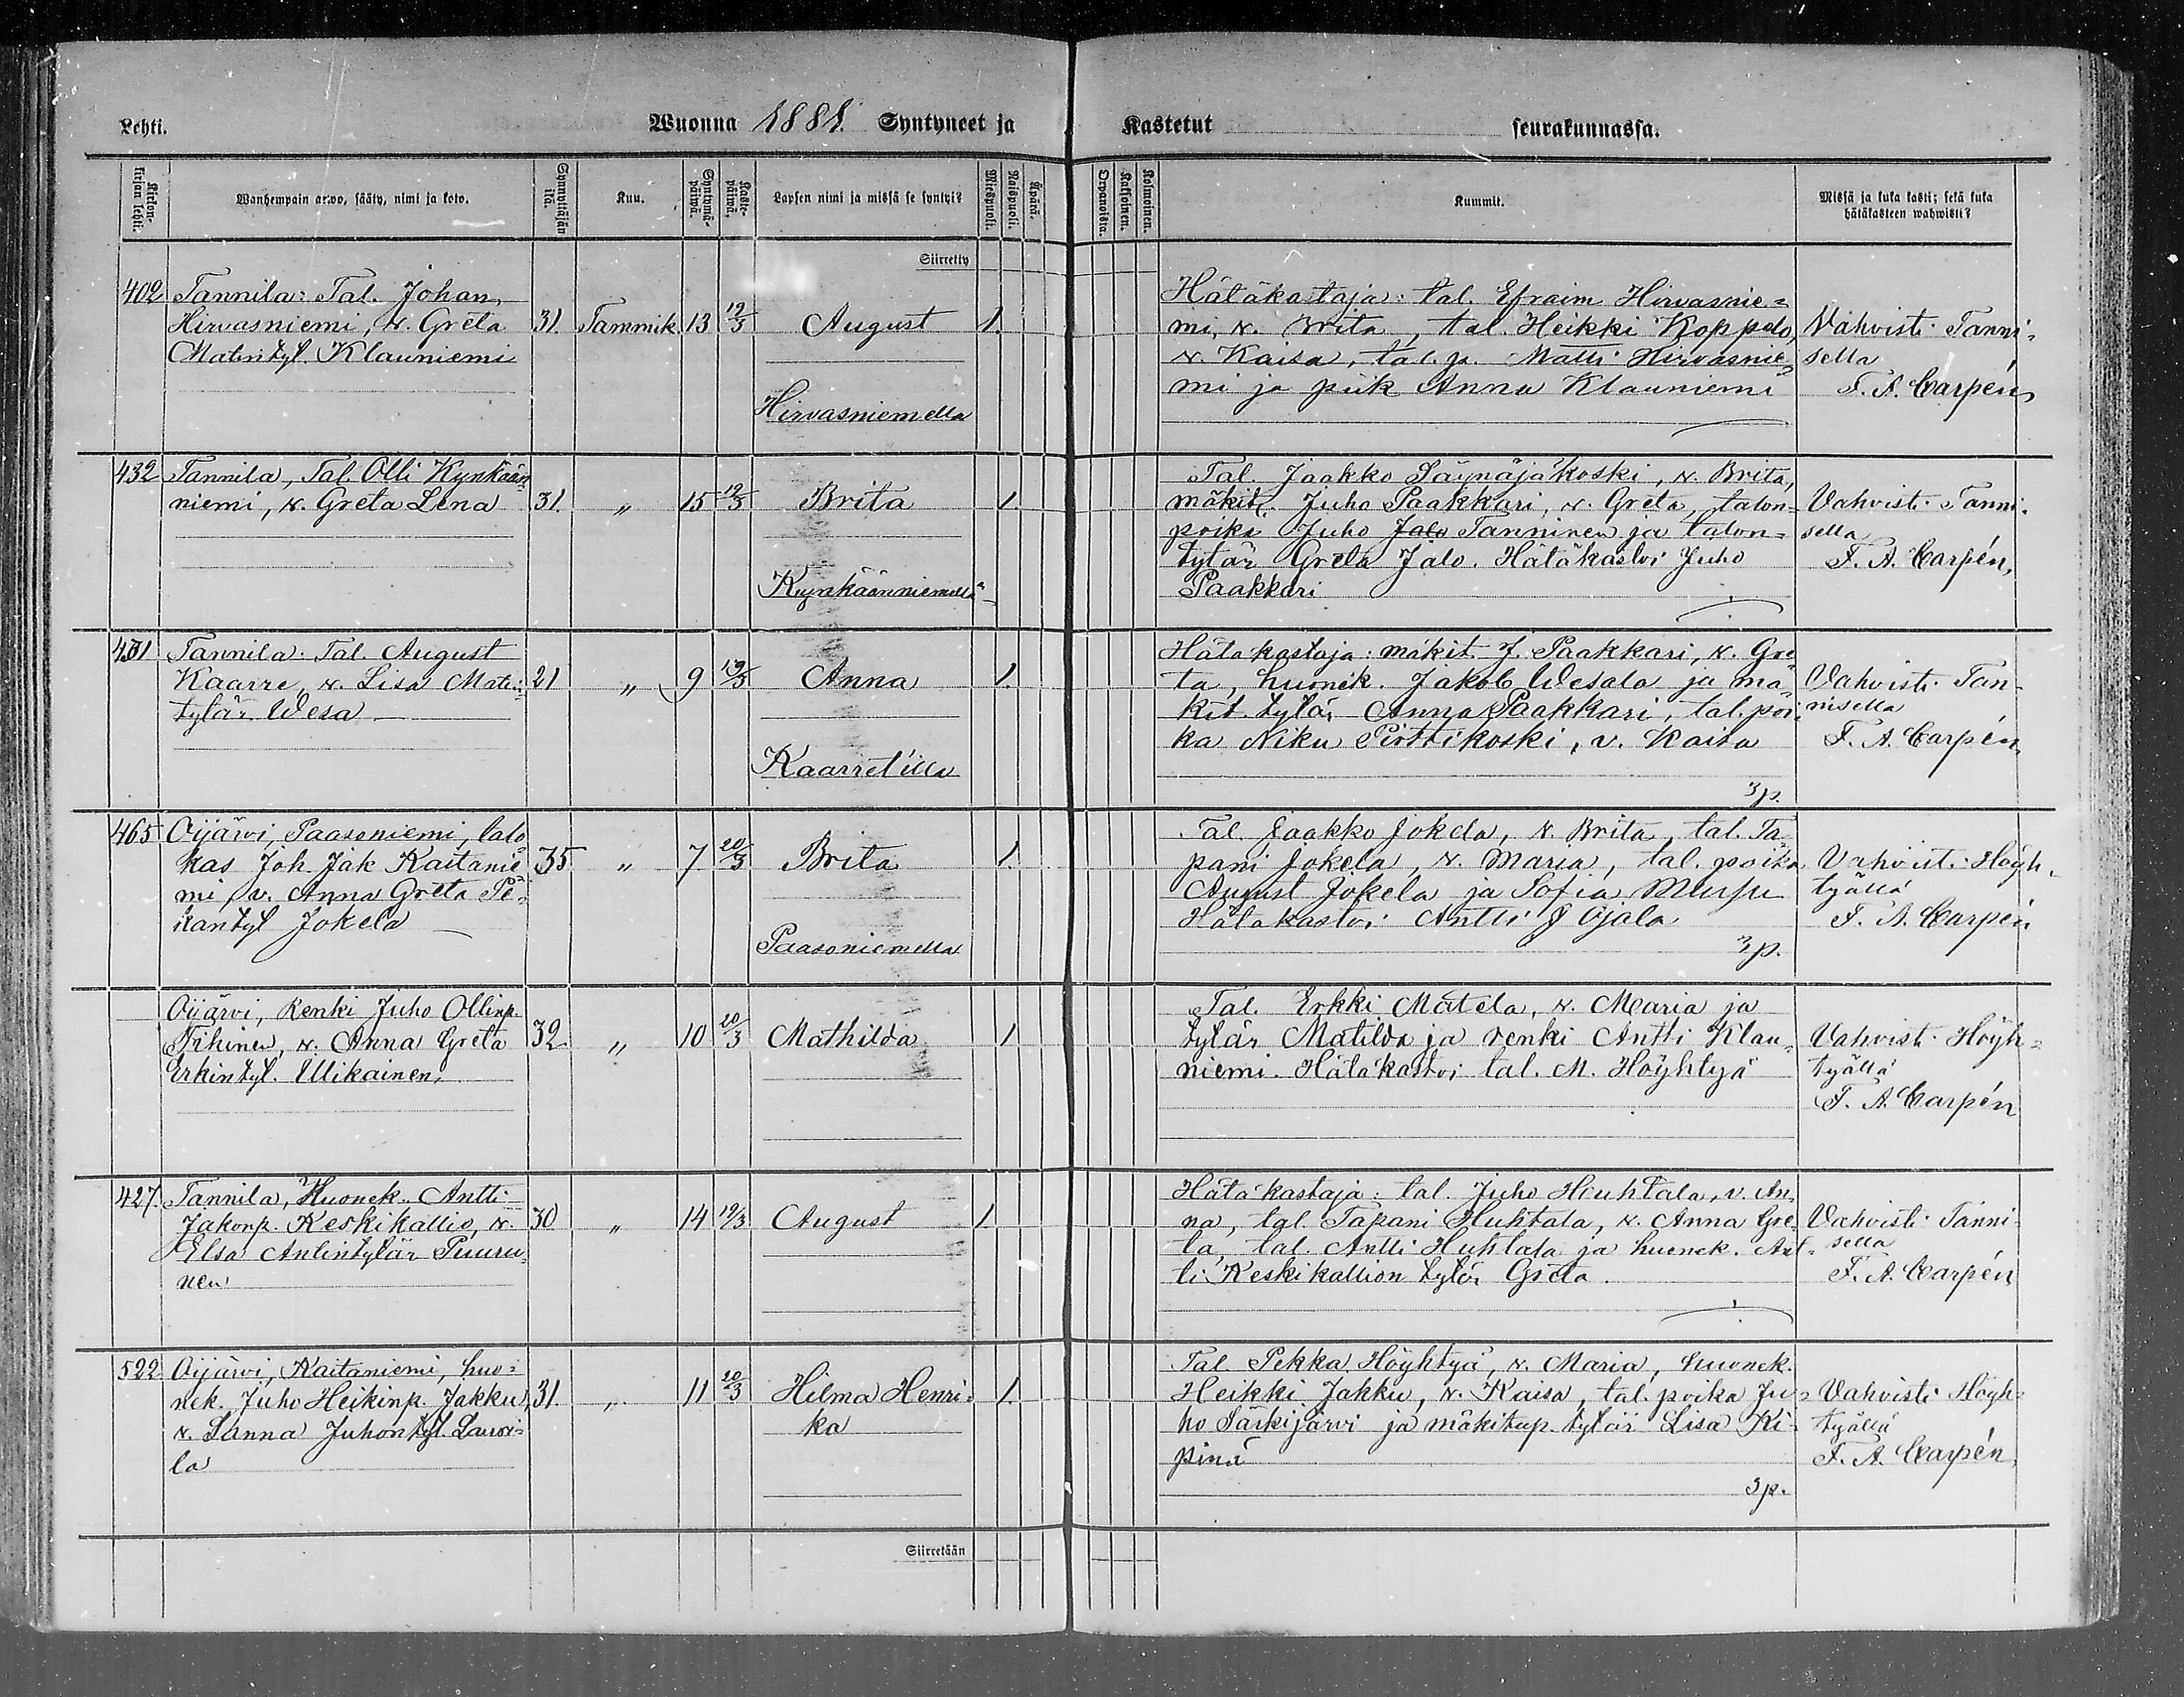 Lehti.
Wuonna 1881. Syntyneet ja Kastetut seurakunnassa.
Ripin-kirjan lehti.
Wanhempain arwo, sääty, nimi ja koto.
Synnyttäjän ikä.
Kuu.
Syntymä-päiwä.
Kaste-päiwä.
Lapsen nimi ja missä se syntyi?
Miespuoli.
Naispuoli.
Äpärä.
Orpanoista.
Kaksoinen.
Kolmoinen.
Kummit.
Missä ja kuka kasti; sekä kuka
hätäkasteen wahwisti?
Siirretty
402 Tannila: Tal. Johan
Hirvasniemi, v. Greta
Matintyl. Klauniemi
31. Tammik. 13 12/3 August 1.
Hirvasniemellä
Hätäkastaja: tal. Efraim Hirvasnie=
mi, v. Brita, tal. Heikki Koppelo,
v. Kaisa, tal. p. Matti Hirvasnie=
mi ja piik Anna Klauniemi
Vahvisti Tanni=
sella
F. A. Carpén
432 Tannila, Tal. Olli Kynkään=
niemi, v. Greta Lena
31. „ 15 12/3 Brita 1.
Kynkäänniemellä
Tal. Jaakko Säynäjäkoski, v. Brita,
mäkit. Juho Paakkari, v. Greta, talon=
poika Juho Jalo Tanninen ja talon=
tytär Greta Jalo. Hätäkastoi Juho
Paakkari
Vahvisti Tanni=
sella
F. A. Carpén,
431 Tannila: Tal. August
Kaarre, v. Lisa Matin=
tytär Wesa
21 „ 9 12/3 Anna 1.
Kaarretilla
Hätäkastaja: mäkit. J. Paakkari, v. Gre=
ta, huonek. Jakob Wesala ja mä=
kit. tytär Anna Paakkari, tal. poi=
ka Niku Pirttikoski, v. Kaisa
3p.
Vahvisti Tan=
nisella
F. A. Carpén
465 Oijärvi, Paasoniemi, talo=
kas Joh. Jak Kaitanie=
mi, v. Anna Greta Pe=
kantyl Jokela
35 „ 7 20/3 Brita 1.
Paasoniemellä
Tal. Jaakko Jokela, v. Brita, tal. Ta=
pani Jokela, v. Maria, tal. poika
August Jokela ja Sofia
Hätäkastoi Antti J Ojala
3p.
Vahvist. Höyh=
tyällä
F. A. Carpén
Oijärvi, Renki Juho Ollinp.
Tihinen, v. Anna Greta
Erkintyl. Ullikainen,
32. „ 10 20/3 Mathilda 1
Tal. Erkki Matela, v. Maria ja
tytär Matilda ja renki Antti Klau=
niemi. Hätäkastoi tal. M. Höyhtyä
Vahvisti Höyh=
tyällä
F. A. Carpén
427. Tannila, Huonek. Antti
Jakonp. Keskikallio, v.
Elsa Antintytär Puuru=
nen
30 „ 14 12/3 August 1
Hätäkastaja: tal. Juho Heuhtala, v. An=
na, tal. Tapani Huhtala, v. Anna Gre=
ta, tal. Antti Huhtala ja huonek. Ant=
ti Keskikallion tytär Greta.
Vahvisti Tanni=
sella
F. A. Carpén
522 Oijärvi, Kaitaniemi, huo=
nek. Juho Heikinp. Jakku,
v. Sanna Juhontyl. Lauri=
la
31. „ 11 20/3 Hilma Henri=
ka 1.
Tal. Pekka Höyhtyä, v. Maria, huonek.
Heikki Jakku, v. Kaisa, tal. poika Ju=
ho Särkijärvi ja mäkitup. tytär Lisa Ki=
pinä
3p.
Vahvisti Höyh=
tyällä
F. A. Carpén,
Siirretään